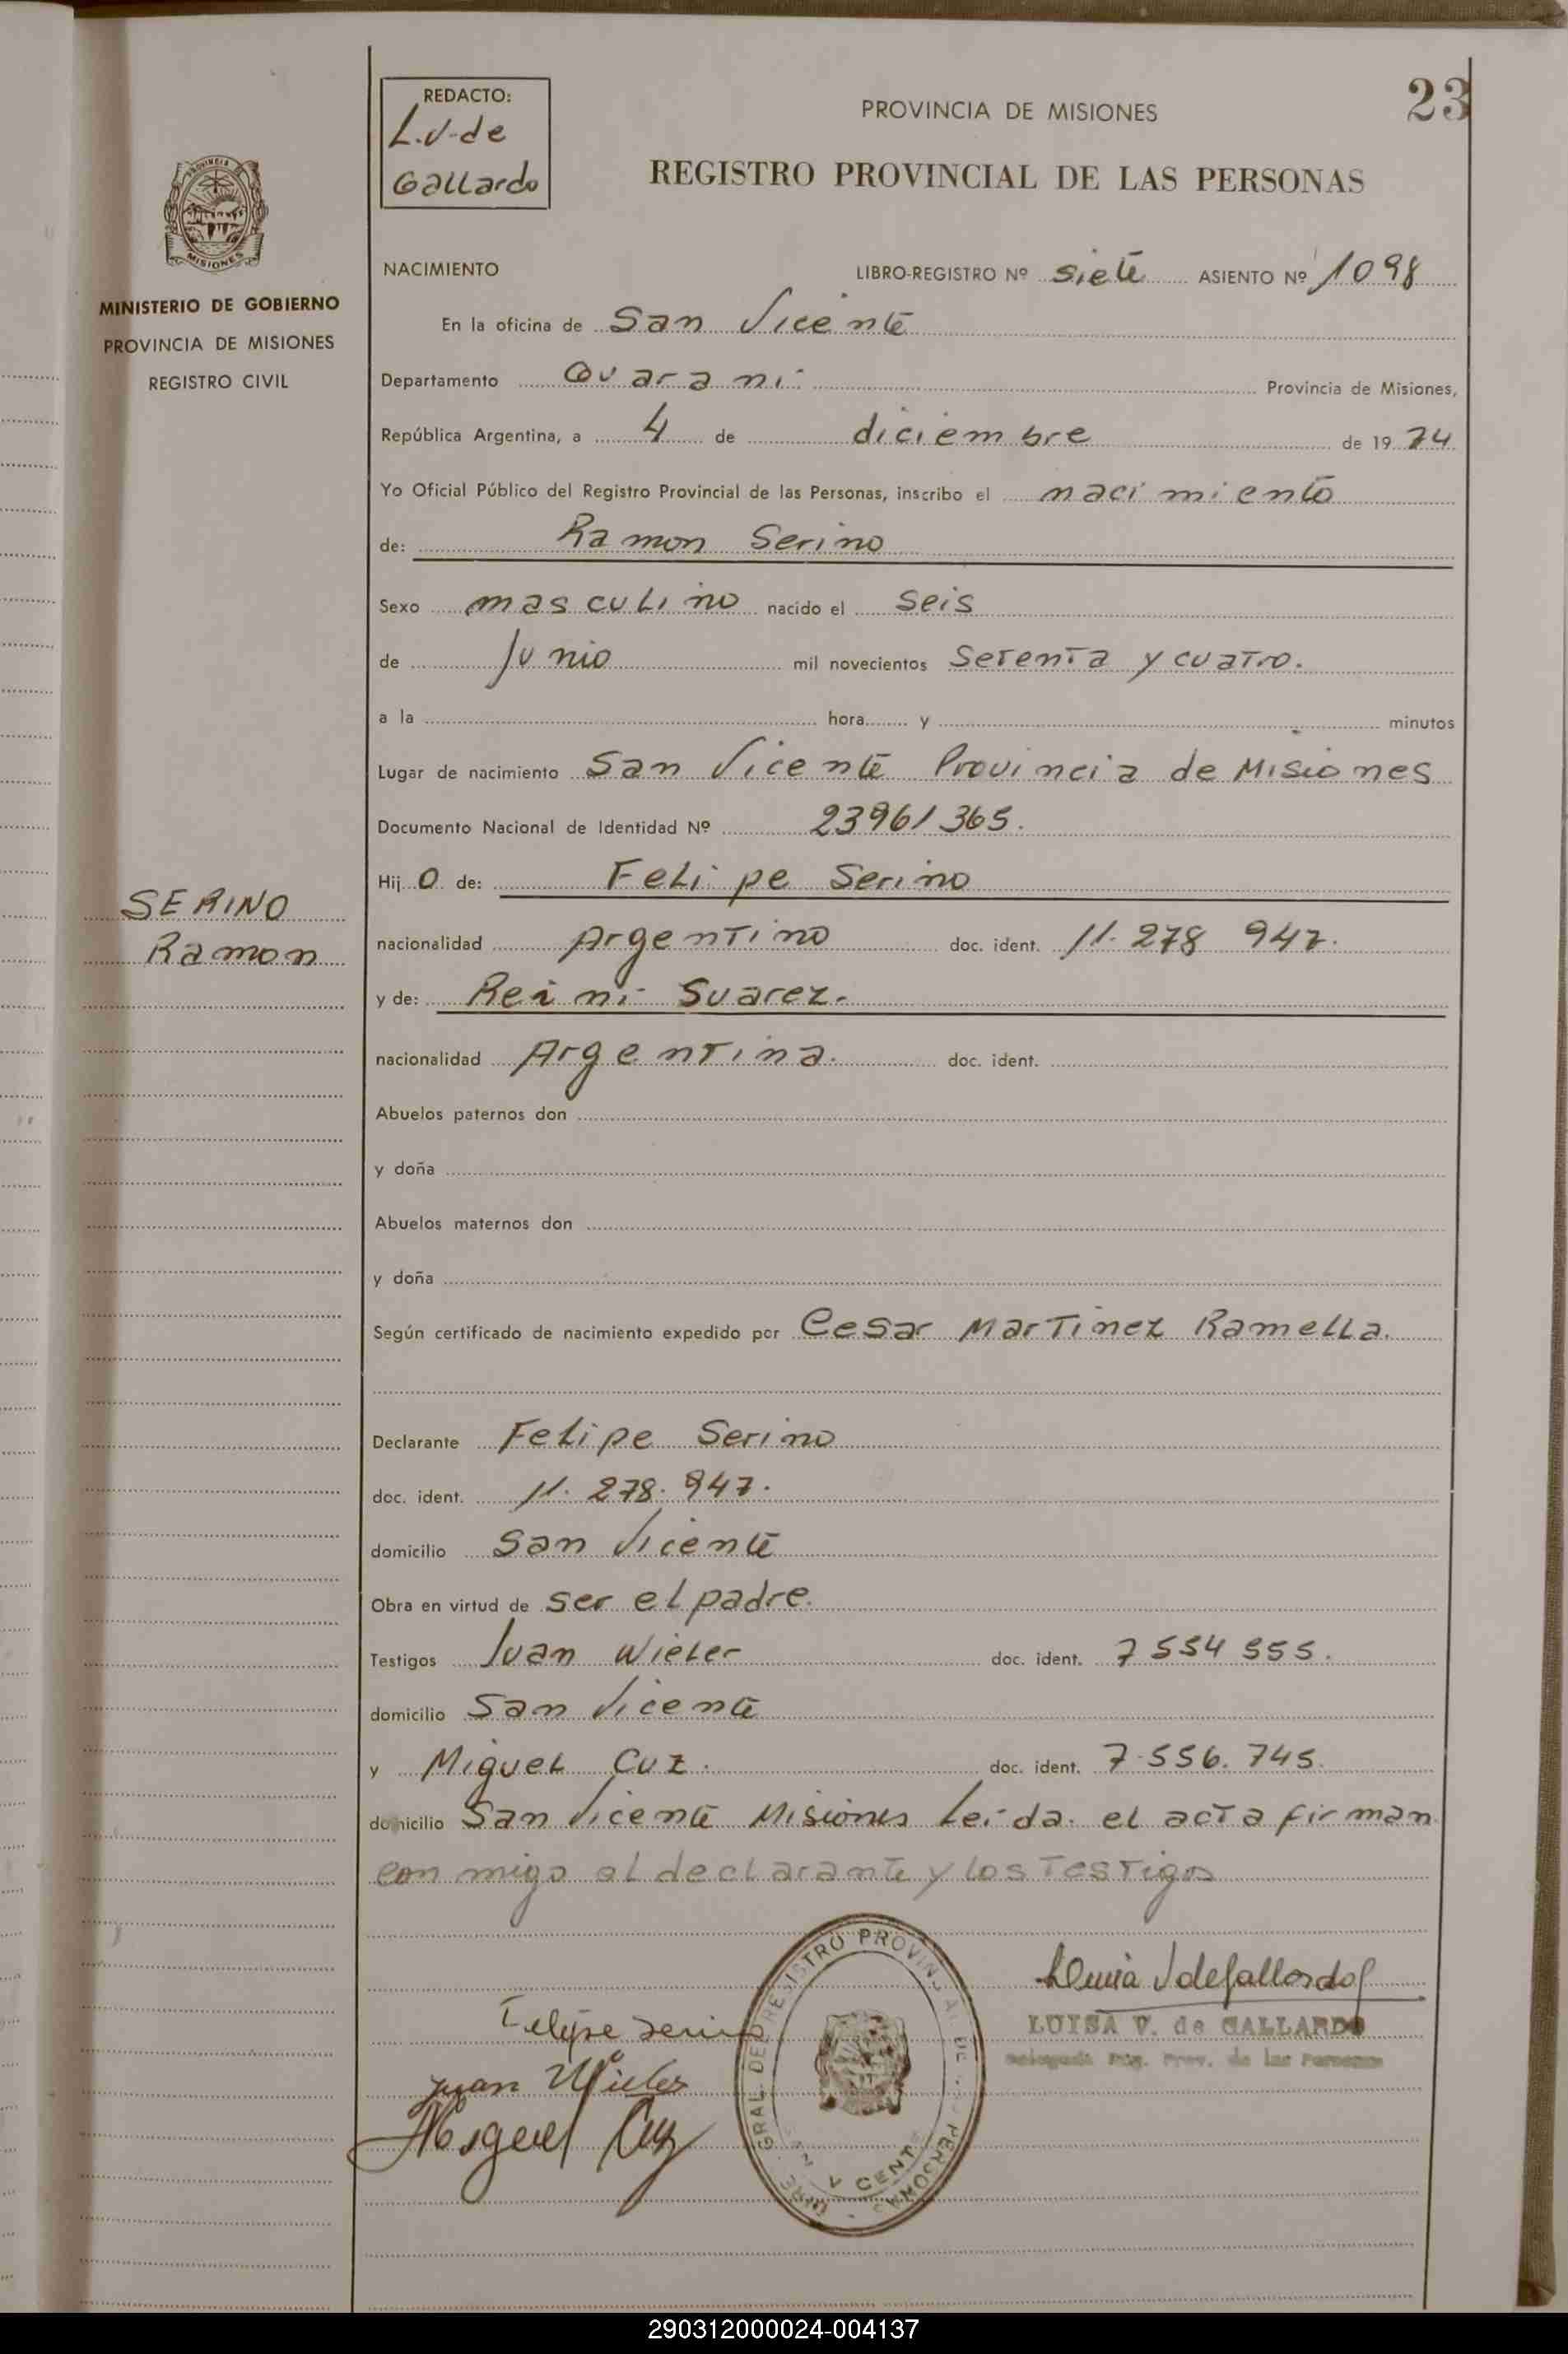 REDACTO:
L.V. de
Gallardo
PROVINCIA DE MISIONES
23
REGISTRO PROVINCIAL DE LAS PERSONAS
MISIONES
MINISTERIO DE GOBIERNO
PROVINCIA DE MISIONES
REGISTRO CIVIL
NACIMIENTO LIBRO-REGISTRO Nº siete ASIENTO Nº 1098
En la oficina de San Vicente
Departamento Guarani Provincia de Misiones,
República Argentina, a 4 de diciembre de 1974
Yo Oficial Público del Registro Provincial de las Personas, inscribo el nacimiento
de: Ramon Serino
Sexo masculino nacido el seis
de Junio mil novecientos Setenta y cuatro.
a la hora y minutos
Lugar de nacimiento San Vicente Provincia de Misiones
Documento Nacional de Identidad Nº 23961365.
Hijo de: Felipe Serino
SERINO
Ramon
nacionalidad Argentino doc. ident. 11.278 947.
y de: Reini Suarez.
nacionalidad Argentina. doc. ident.
Abuelos paternos don
y doña
Abuelos maternos don
y doña
Según certificado de nacimiento expedido por Cesar Martinez Ramella.
Declarante Felipe Serino
doc. ident. 11.278.947.
domicilio San Vicente
Obra en virtud de ser el padre.
Testigos Juan Wieler doc. ident. 7554555.
domicilio San Vicente
y Miguel Cuz. doc. ident. 7.556.745.
domicilio San Vicente Misiones Leida el acta firman
conmigo el declarante y los Testigos
Felipe Serino
Juan Wieler
Miguel Cuz
Luisa V de Gallardo
LUISA V. de GALLARDO
Delegada Reg. Prov. de las Personas
290312000024-004137